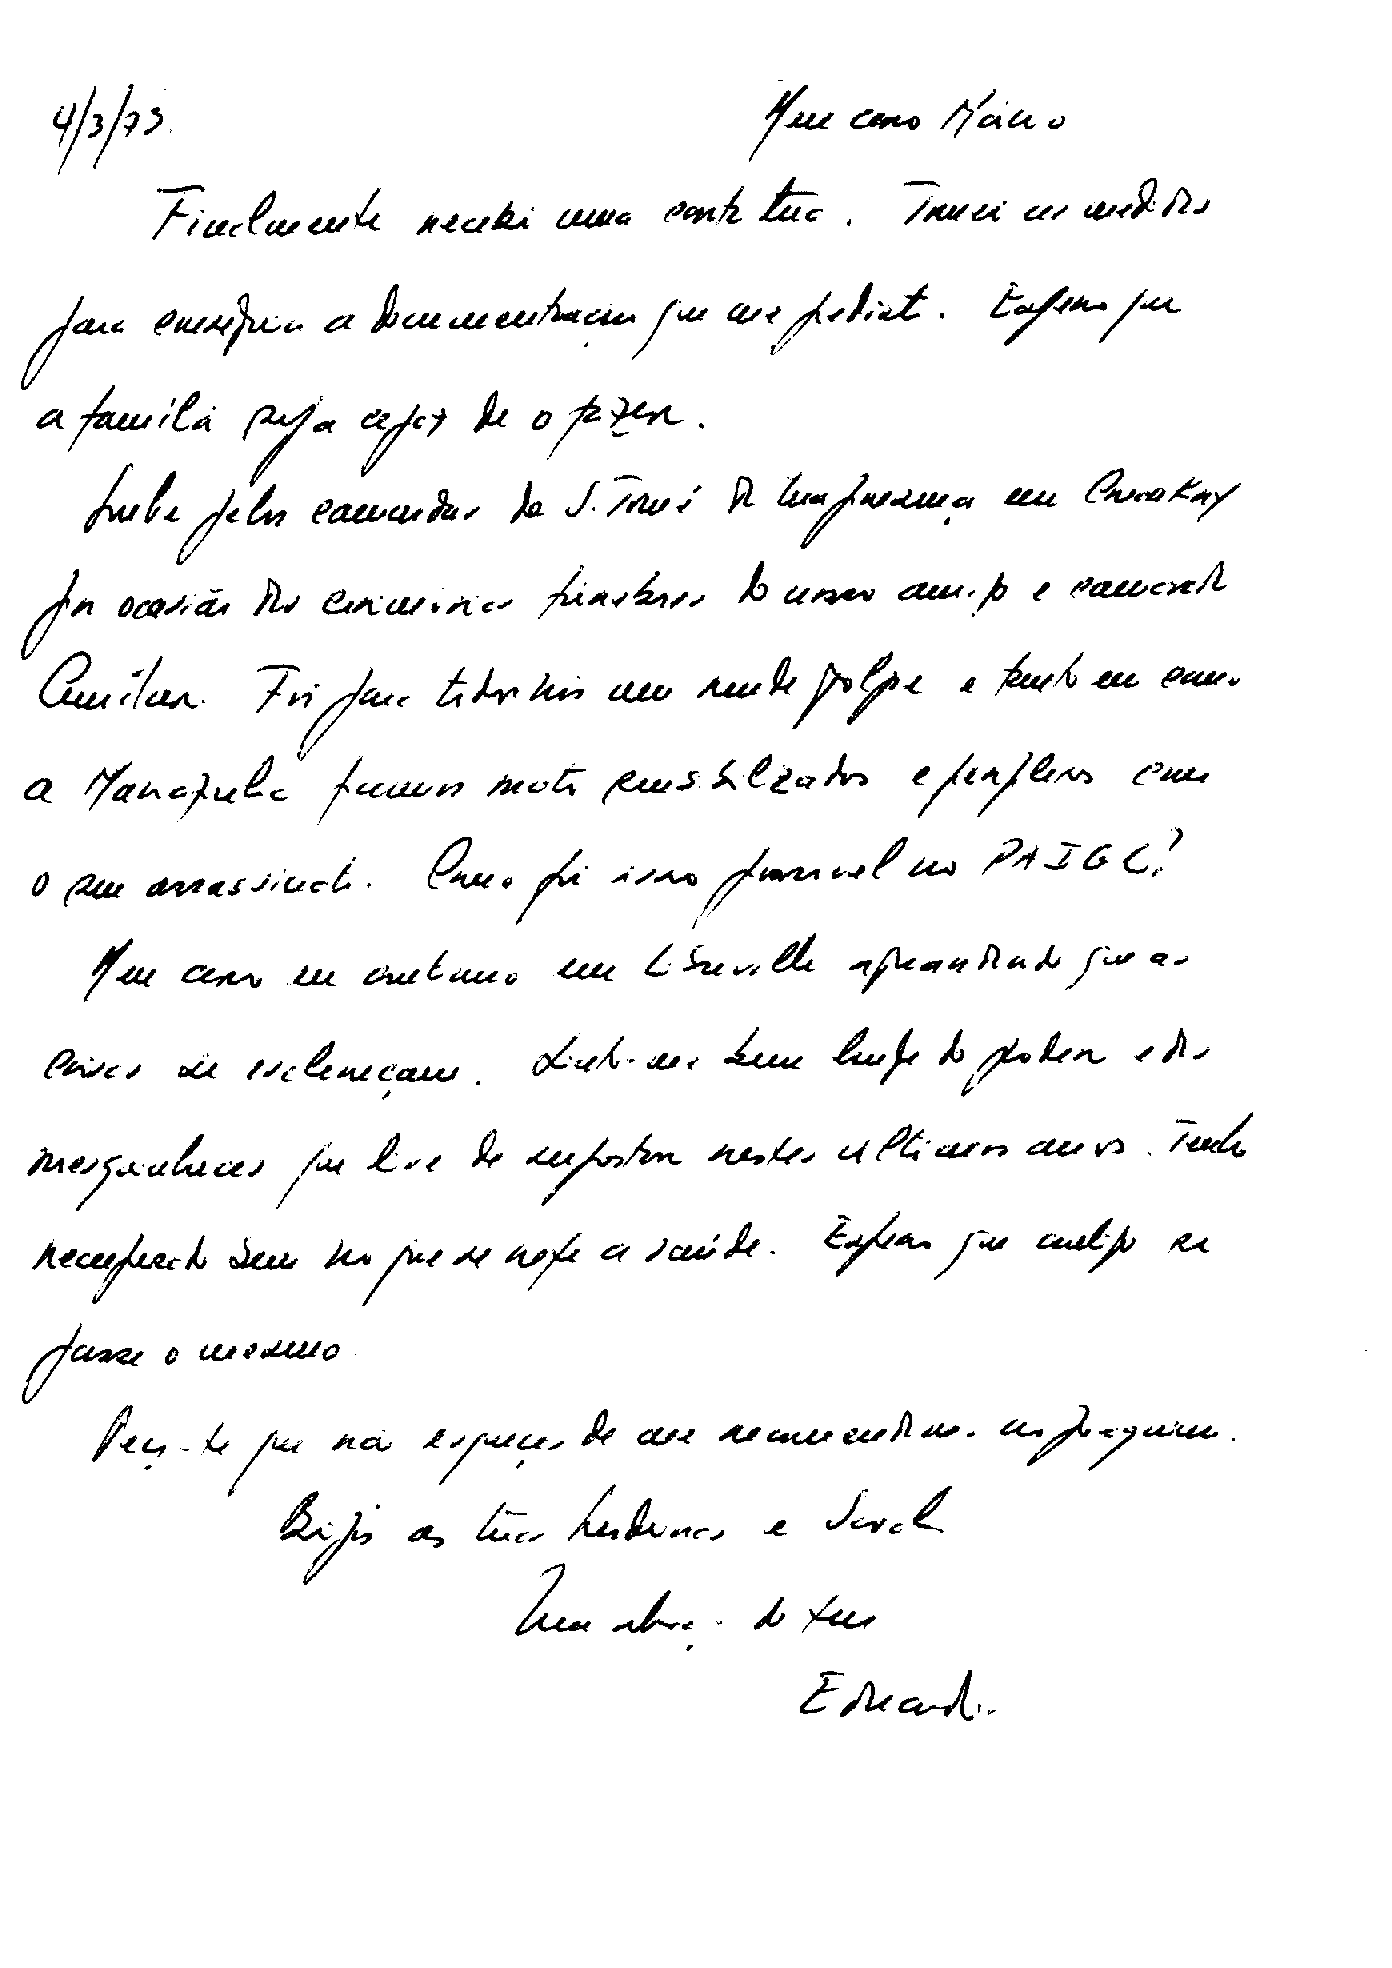 4/3/73. Meu caro Mário
Finalmente recebi uma carta tua. Tomei as medidas
para conseguir a documentação que me pediste. Espero que
a família seja capaz de o fazer.
Soube pelos camaradas de S. Tomé da tua presença em Conakry
por ocasião das cerimónias fúnebres do nosso amigo e camarada
Amílcar. Foi para todos nós um rude golpe e tanto eu como
a ficamos muito sensibilizados e perplexos com
o seu assassinato. Como foi isso possível no PAIGC?
Meu caro eu continuo em Libreville aguardando que as
coisas se esclareçam. Sinto-me bem longe do poder e das
mesquinhices que tive de suportar nestes ultimos anos. Tenho
recuperado bem no que se refe a saúde. Espero que contigo se
passe o mesmo
Peço-te que não esqueças de me recomendares ao Joaquim.
Beijos as tuas herdeiras e Sarah
Um abraço do teu
Eduardo.